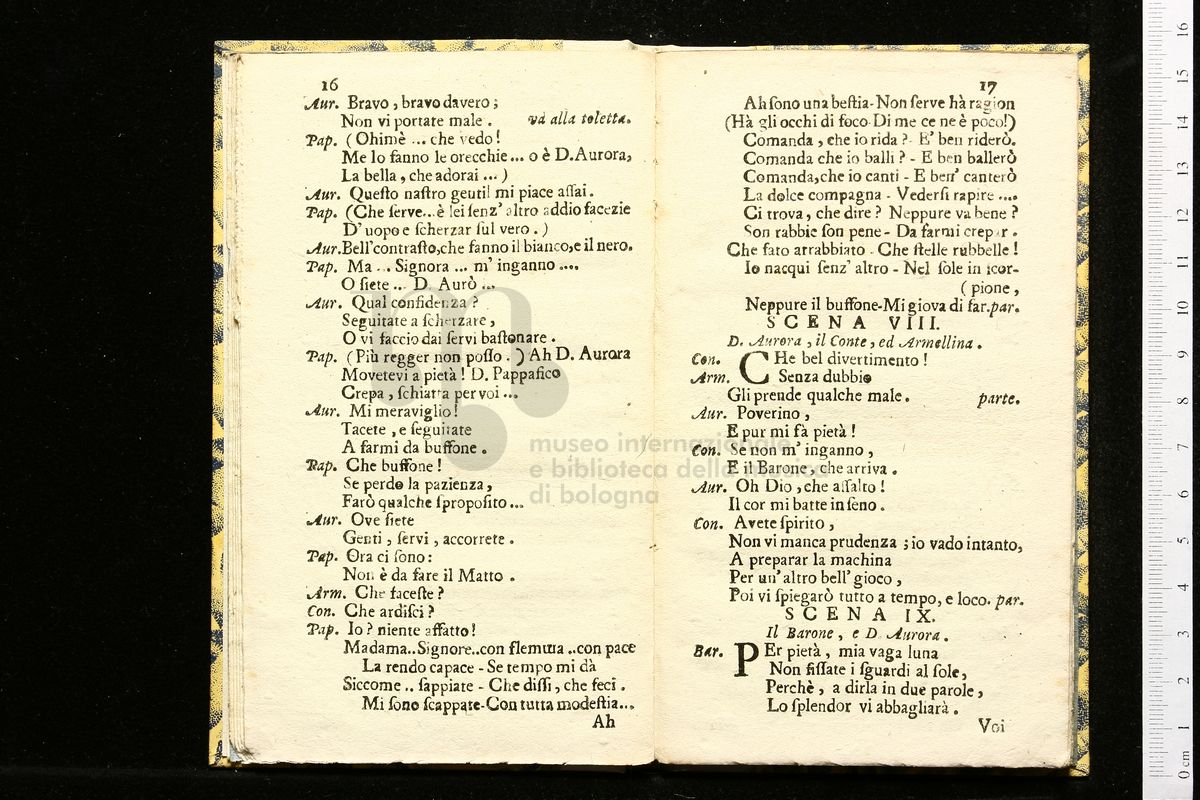 16
Aur. Bravo, bravo davero;
Non vi portate male. và alla toletta.
Pap. (Ohimè ... che vedo!
Me lo fanno le orecchie... o è D. Aurora,
La bella, che adorai ...)
Aur. Questo nastro gentil mi piace assai.
Pap. (Che serve...è lei senz' altro addio facezie
D' uopo e scherzar sul vero.)
Aur. Bell' contrasto, che fanno il bianco, e il nero.
Pap. Ma ... Signora ... m' inganno ....
O siete ... D. Aurò ...
Aur. Qual confidenza?
Seguitate a scherzare,
O vi faccio dai servi bastonare.
Pap. (Più regger non posso.) Ah D. Aurora
Movetevi a pietà! D. Pappafico
Crepa, schiatta per voi ...
Aur. Mi meraviglio!
Tacete, e seguitate
A farmi da buffone.
Pap. Che buffone!
Se perdo la pazienza,
Farò qualche sproposito...
Aur. Ove siete
Genti, servi, accorrete.
Pap. Ora ci sono:
Non è da fare il Matto.
Arm. Che faceste?
Con. Che ardisci?
Pap. Io? niente affatto!
Madama..Signore..con flemma ..con pace
La rendo capace - Se tempo mi dà
Siccome .. sappiate - Che dissi, che feci.
Mi sono scappate-Con tutta modestia...
Ah
17
Ah sono una bestia-Non serve hà ragion
(Hà gli occhi di foco Di me ce ne è poco!)
Comanda, che io rida? - E' ben riderò.
Comanda che io balli? - E ben ballerò
Comanda, che io canti - E ben' canterò
La dolce compagna - Vedersi rapire ....
Ci trova, che dire? Neppure va bene?
Son rabbie son pene - Da farmi crepar.
Che fato arrabbiato - Che stelle rubbelle!
Io nacqui senz' altro - Nel sole in scor-
(pione,
Neppure il buffone-Mi giova di far. par.
SCENA VIII.
D. Aurora, il Conte, ed Armellina.
Con. CHe bel divertimento!
Arm. Senza dubbio
Gli prende qualche male. parte.
Aur. Poverino,
E pur mi fà pietà!
Con. Se non m' inganno,
E il Barone, che arriva.
Aur. Oh Dio, che assalto!
Il cor mi batte in seno.
Con. Avete spirito,
Non vi manca prudenza; io vado intanto,
A preparar la machina
Per un' altro bell' gioco,
Poi vi spiegarò tutto a tempo, e loco. par.
SCENA IX.
Il Barone, e D. Aurora.
Bar. PEr pietà, mia vaga luna
Non fissate i sguardi al sole,
Perchè, a dirla in due parole,
Lo splendor vi abbagliarà.
Voi
museo internazionale
e biblioteca della musica
di bologna
0 cm 1 2 3 4 5 6 7 8 9 10 11 12 13 14 15 16